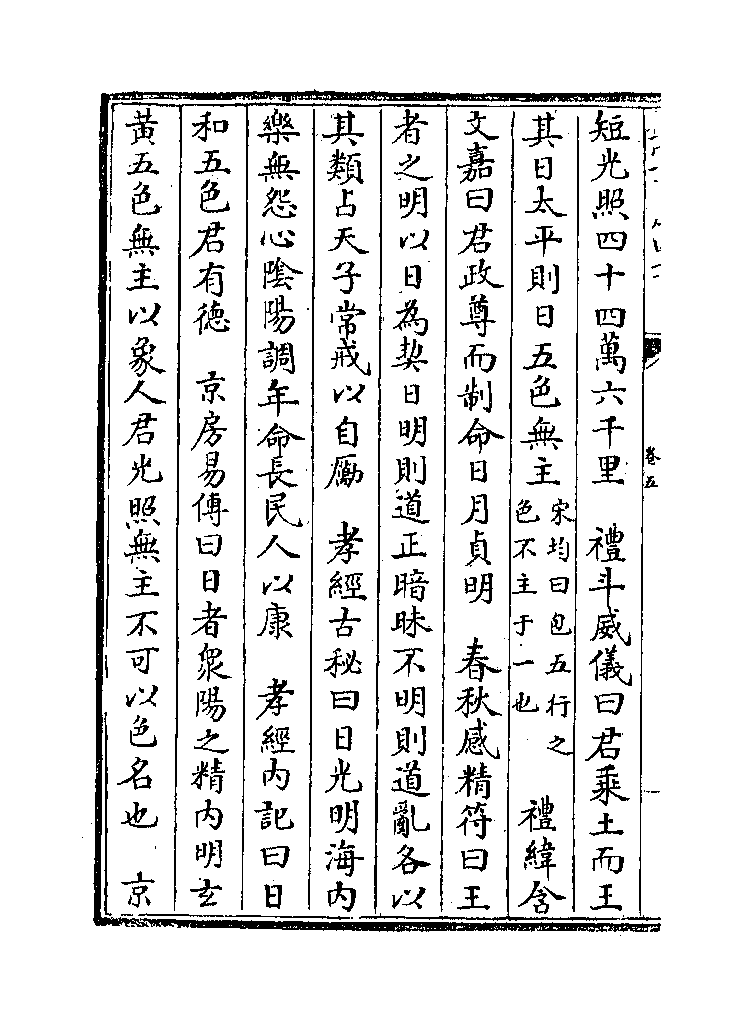 短光照四十四萬六千里　禮斗威儀曰君乘土而王
其日太平則日五色無主宋均曰包五行之色不主于一也　禮緯含
文嘉曰君政尊而制命日月貞明　春秋感精符曰王
者之明以日為契日明則道正暗昧不明則道亂各以
其類占天子常戒以自勵　孝經古秘曰日光明海內
樂無怨心陰陽調年命長民人以康　孝經內記曰日
和五色君有德　京房易傳曰日者衆陽之精內明玄
黃五色無主以象人君光照無主不可以色名也　京
卷五